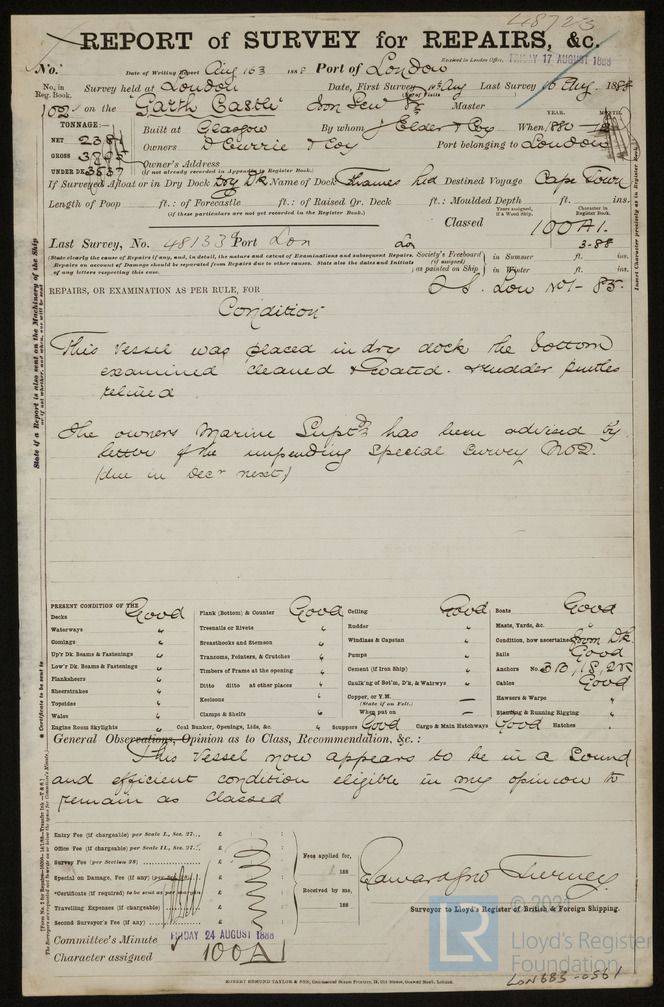 48723
REPORT of SURVEY for REPAIRS, &c.
Received in London Office, FRIDAY 17 AUGUST 1888
No. Date of Writing Report Aug 16 1888 Port of London
No. in Reg. Book. Survey held at London Date, First Survey Aug Last Survey Aug. 1888
102 on the "Garth Castle" Iron Screw Master
TONNAGE: YEAR. MONTH.
Built at Glasgow By whom J Elder & Coy When 1880
NET
GROSS
UNDER DK
Owners D Currie & Coy Port belonging to London
Owner's Address
(if not already recorded in Appendix to Register Book.)
If Surveyed Afloat or in Dry Dock Dry Dk Name of Dock Thames Destined Voyage Cape Town
Length of Poop ft.: of Forecastle ft.: of Raised Qr. Deck ft.: Moulded Depth ft. ins.
(if these particulars are not yet recorded in the Register Book.)
Years assigned, if a Wood Ship.
Character in Register Book.
Classed 100A1.
Last Survey, No. 48133 Port Lon 3-88
(State clearly the cause of Repairs if any, and, in detail, the nature and extent of Examinations and subsequent Repairs.
Repairs on account of Damage should be separated from Repairs due to other causes. State also the dates and Initials
of any letters respecting this case.
Society's Freeboard (if assigned) as painted on Ship
in Summer ft. ins.
in Winter ft. ins.
REPAIRS, OR EXAMINATION AS PER RULE, FOR S.S. Lon No1-85.
Condition
This Vessel was placed in dry dock the bottom
examined cleaned & Coated. & rudder pintles
The owners Marine Supt has been advised by
letter of the impending Special Survey No2.
(due in Decr next)
PRESENT CONDITION OF THE
Decks Good
Waterways "
Comings "
Up'r Dk. Beams & Fastenings "
Low'r Dk. Beams & Fastenings "
Planksheers "
Sheerstrakes "
Topsides "
Wales "
Engine Room Skylights "
Plank (Bottom) & Counter Good
Treenails or Rivets "
Breasthooks and Stemson "
Transoms, Pointers, & Crutches "
Timbers of Frame at the opening "
Ditto ditto at other places "
Keelsons "
Clamps & Shelfs "
Coal Bunker, Openings, Lids, &c. "
Ceiling Good
Rudder "
Windlass & Capstan "
Pumps "
Cement (if Iron Ship) "
Caulk'g of Bot'm, D'k, & Watrwys "
Copper, or Y.M. —
(State if on Felt.)
When put on —
Scuppers Good Cargo & Main Hatchways Good Hatches "
Boats Good
Masts, Yards, &c. "
Condition, how ascertained from Dk.
Sails Good
Anchors No. 3B, 1S, 2K
Cables Good
Hawsers & Warps "
Standing & Running Rigging "
General Observations, Opinion as to Class, Recommendation, &c. :
This Vessel now appears to be in a Sound
and efficient condition eligible in my opinion to
remain as Classed
Entry Fee (if chargeable) per Scale I., Sec. 27... £ : :
Office Fee (if chargeable) per Scale II., Sec. 27... £
Survey Fee (per Section 28) £
Special on Damage, Fee (if any) £
*Certificate (if required) to be sent as per margin £
Travelling Expenses (if chargeable) £
Second Surveyor's Fee (if any) £
Fees applied for, 188
Received by me, 188
Surveyor to Lloyd's Register of British & Foreign Shipping.
Committee's Minute FRIDAY 24 AUGUST 1888
Character assigned 100A1
ROBERT EDMUND TAYLOR & SON,
LON 683-0561
© 2021
LR
Lloyd's Register
Foundation
State if a Report is also sent on the Machinery of the Ship
Insert Character precisely as in Register Book.